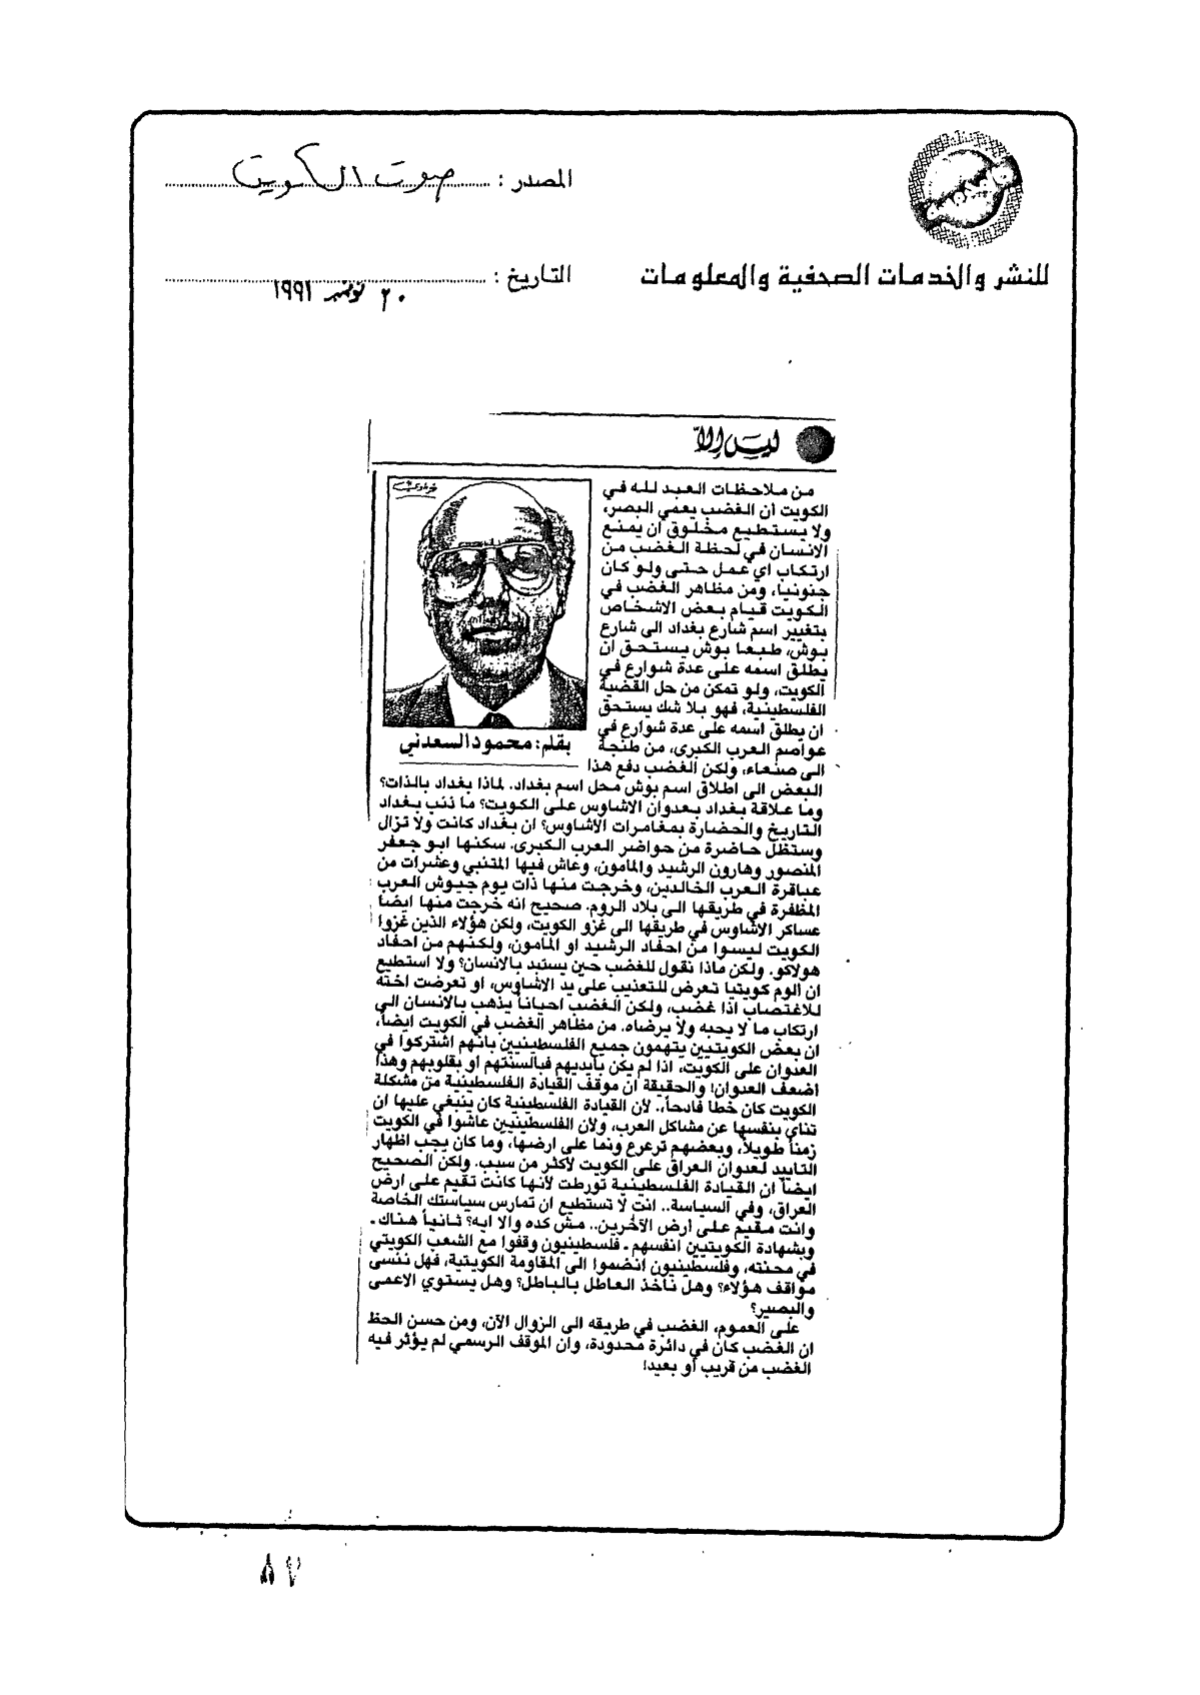 المصدر : صوت الكويت
للنشر والخدمات الصحفية والمعلومات
التاريخ : ٢٠ نوفمبر ١٩٩١
ليس إلاّ
من ملاحظات العبد لله في
الكويت ان الغضب يعمي البصر،
ولا يستطيع مخلوق ان يمنع
الانسان في لحظة الغضب من
ارتكاب اي عمل حتى ولو كان
جنونيا، ومن مظاهر الغضب في
الكويت قيام بعض الاشخاص
بتغيير اسم شارع بغداد الى شارع
بوش، طبعا بوش يستحق ان
يطلق اسمه على عدة شوارع في
الكويت، ولو تمكن من حل القضية
الفلسطينية، فهو بلا شك يستحق
ان يطلق اسمه على عدة شوارع في
عواصم العرب الكبرى، من طنجة
الى صنعاء، ولكن الغضب دفع هذا
بقلم: محمود السعدني
البعض الى اطلاق اسم بوش محل اسم بغداد. لماذا بغداد بالذات؟
وما علاقة بغداد بعدوان الاشاوس على الكويت؟ ما ذنب بغداد
التاريخ والحضارة بمغامرات الاشاوس؟ ان بغداد كانت ولا تزال
وستظل حاضرة من حواضر العرب الكبرى. سكنها ابو جعفر
المنصور وهارون الرشيد والمامون، وعاش فيها المتنبي وعشرات من
عباقرة العرب الخالدين، وخرجت منها ذات يوم جيوش العرب
المظفرة في طريقها الى بلاد الروم. صحيح انه خرجت منها ايضا
عساكر الاشاوس في طريقها الى غزو الكويت، ولكن هؤلاء الذين غزوا
الكويت ليسوا من احفاد الرشيد او المامون، ولكنهم من احفاد
هولاكو. ولكن ماذا نقول للغضب حين يستبد بالانسان؟ ولا استطيع
ان الوم كويتيا تعرض للتعذيب على يد الاشاوس، او تعرضت اخته
للاغتصاب اذا غضب، ولكن الغضب احياناً يذهب بالانسان الى
ارتكاب ما لا يحبه ولا يرضاه. من مظاهر الغضب في الكويت ايضاً،
ان بعض الكويتيين يتهمون جميع الفلسطينيين بانهم اشتركوا في
العدوان على الكويت، اذا لم يكن بايديهم فبالسنتهم او بقلوبهم وهذا
اضعف العدوان! والحقيقة ان موقف القيادة الفلسطينية من مشكلة
الكويت كان خطا فادحاً،. لأن القيادة الفلسطينية كان ينبغي عليها ان
تناى بنفسها عن مشاكل العرب، ولان الفلسطينيين عاشوا في الكويت
زمناً طويلاً، وبعضهم ترعرع ونما على ارضها، وما كان يجب اظهار
التاييد لعدوان العراق على الكويت لأكثر من سبب. ولكن الصحيح
ايضاً ان القيادة الفلسطينية تورطت لأنها كانت تقيم على ارض
العراق، وفي السياسة.. انت لا تستطيع ان تمارس سياستك الخاصة
وانت مقيم على أرض الآخرين.. مش كده والا ايه؟ ثانياً هناك -
وبشهادة الكويتيين انفسهم - فلسطينيون وقفوا مع الشعب الكويتي
في محنته، وفلسطينيون انضموا الى المقاومة الكويتية، فهل ننسى
مواقف هؤلاء؟ وهل ناخذ العاطل بالباطل؟ وهل يستوي الاعمى
والبصير؟
على العموم، الغضب في طريقه الى الزوال الآن، ومن حسن الحظ
ان الغضب كان في دائرة محدودة، وان الموقف الرسمي لم يؤثر فيه
الغضب من قريب أو بعيد!